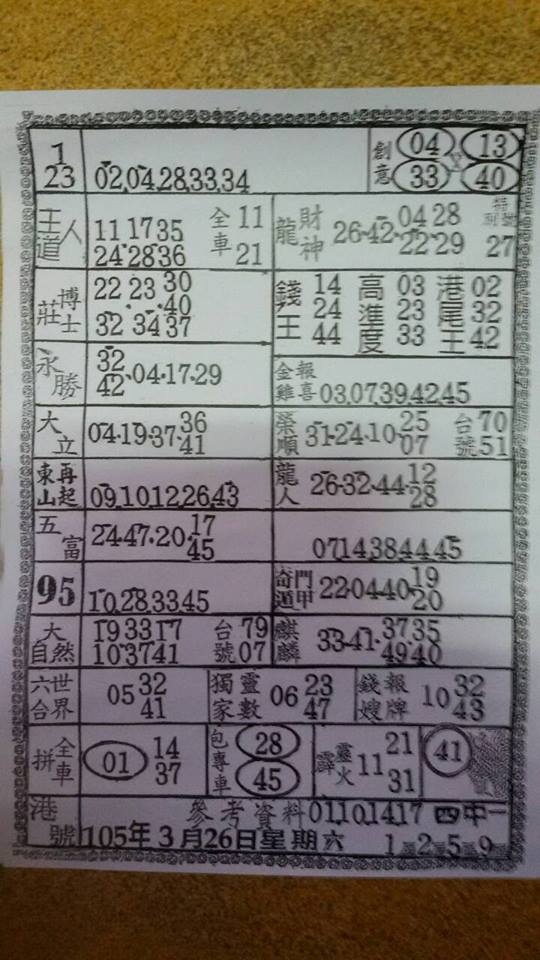 1
23
02,04,28,33,34
創意
04 13
33 40
王道人
11 17 35
24 28 36
全車
11
21
龍
財神
26-42-
04 28
22 29
27
莊
博士
22 23 30
40
32 34 37
錢王
14
24
44
高進度
03
23
33
港尾王
02
32
42
永勝
32
42
04-17-29
金雞
報喜
03,07,39,42,45
大立
04-19-37-
36
41
榮順
31-24-10-
25
07
台號
70
51
東山
再起
09,10,12,26,43
龍人
26-32-44-
12
28
五富
24-47-20-
17
45
07,14,38,44,45
95
10,28,33,45
奇門
遁甲
22-04-40-
19
20
大自然
19 33 17
10 37 41
台號
79
07
麒麟
33-41-
37 35
49 40
六合
世界
05
32
41
獨家
靈數
06
23
47
錢嫂
報牌
10
32
43
拼
全車
01
14
37
包專車
28
45
霹
靈火
11
21
31
41
港號
參考資料01,10,14,17 四中一
105年3月26日星期六 1 2 5 9